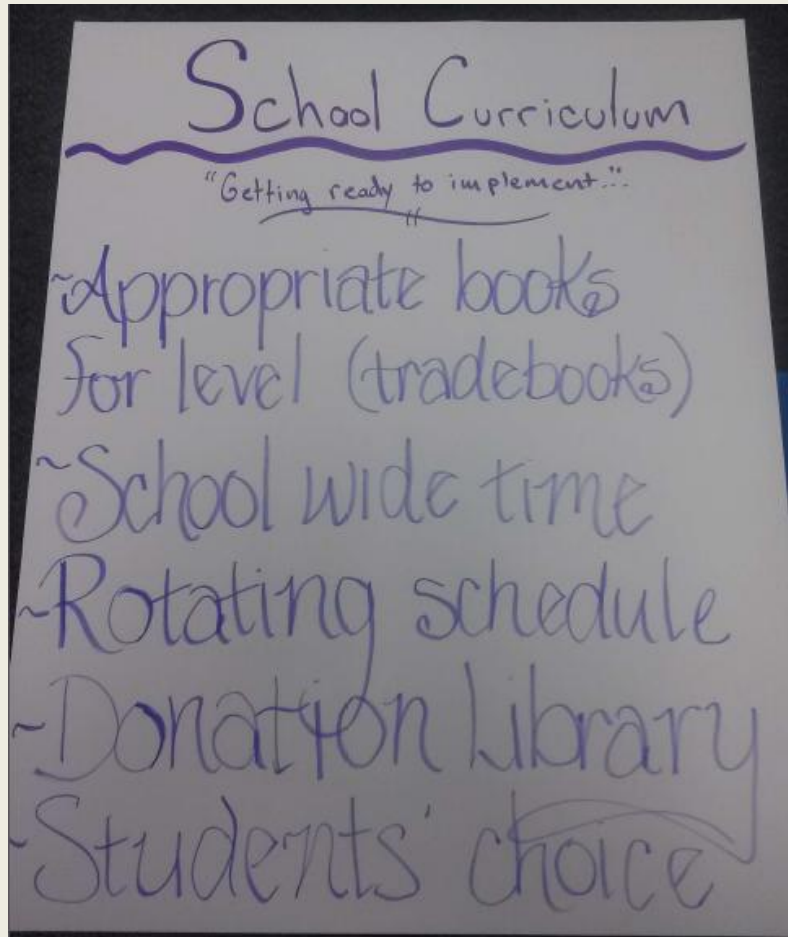 School Curriculum
"Getting ready to implement..."
~Appropriate books
for level (tradebooks)
~School wide time
~Rotating schedule
~Donation Library
~Students' choice